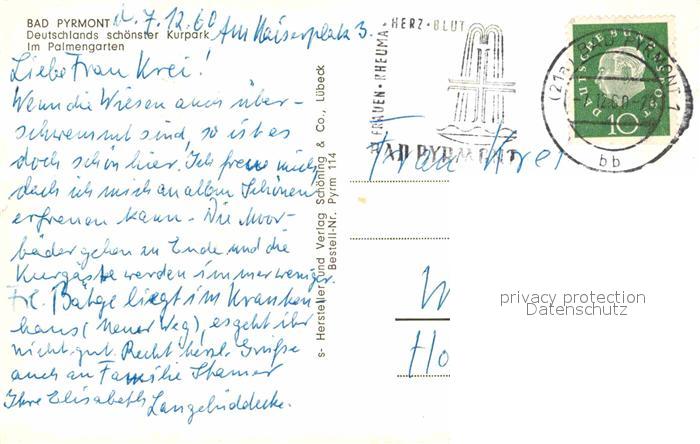 BAD PYRMONT
Deutschlands schönster Kurpark
Im Palmengarten
d. 7.12.60 Am Kaiserplatz 3.
Liebe Frau Krei!
Wenn die Wiesen auch über-
schwemmt sind, so ist es
doch schön hier. Ich freue mich,
daß ich mich an allem Schönen
erfreuen kann. Die Moor-
bäder gehen zu Ende und die
Kurgäste werden immer weniger.
Frl. Batge liegt im Kranken
haus (neuer Weg), es geht ihr
nicht gut. Recht herzl. Grüße
auch an Familie Stamer
Ihre Elisabeth Langelüddecke.
s- Hersteller und Verlag Schöning & Co., Lübeck
Bestell-Nr. Pyrm 114
FRAUEN · RHEUMA · HERZ · BLUT
BAD PYRMONT
(21a) BAD PYRMONT 1
-7.12.60
bb
DEUTSCHE BUNDESPOST
10
Frau Krei
W
Ho
privacy protection
Datenschutz